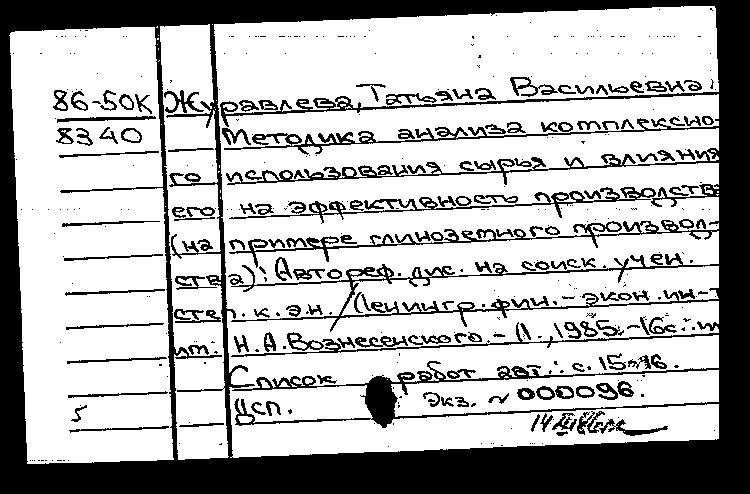 86-50К Журавлева, Татьяна Васильевна.
8340 Методика анализа комплексно-
го использования сырья и влияния
его на эффективность производства
(на примере глиноземного производ-
ства): Автореф. дис. на соиск. учен.
степ. к. э. н. / Ленингр. фин.-экон. ин-т
им. Н. А. Вознесенского. - Л., 1985. - 16 с.
Список работ авт.: с. 15-16.
Дсп. Экз. № 000096.
5